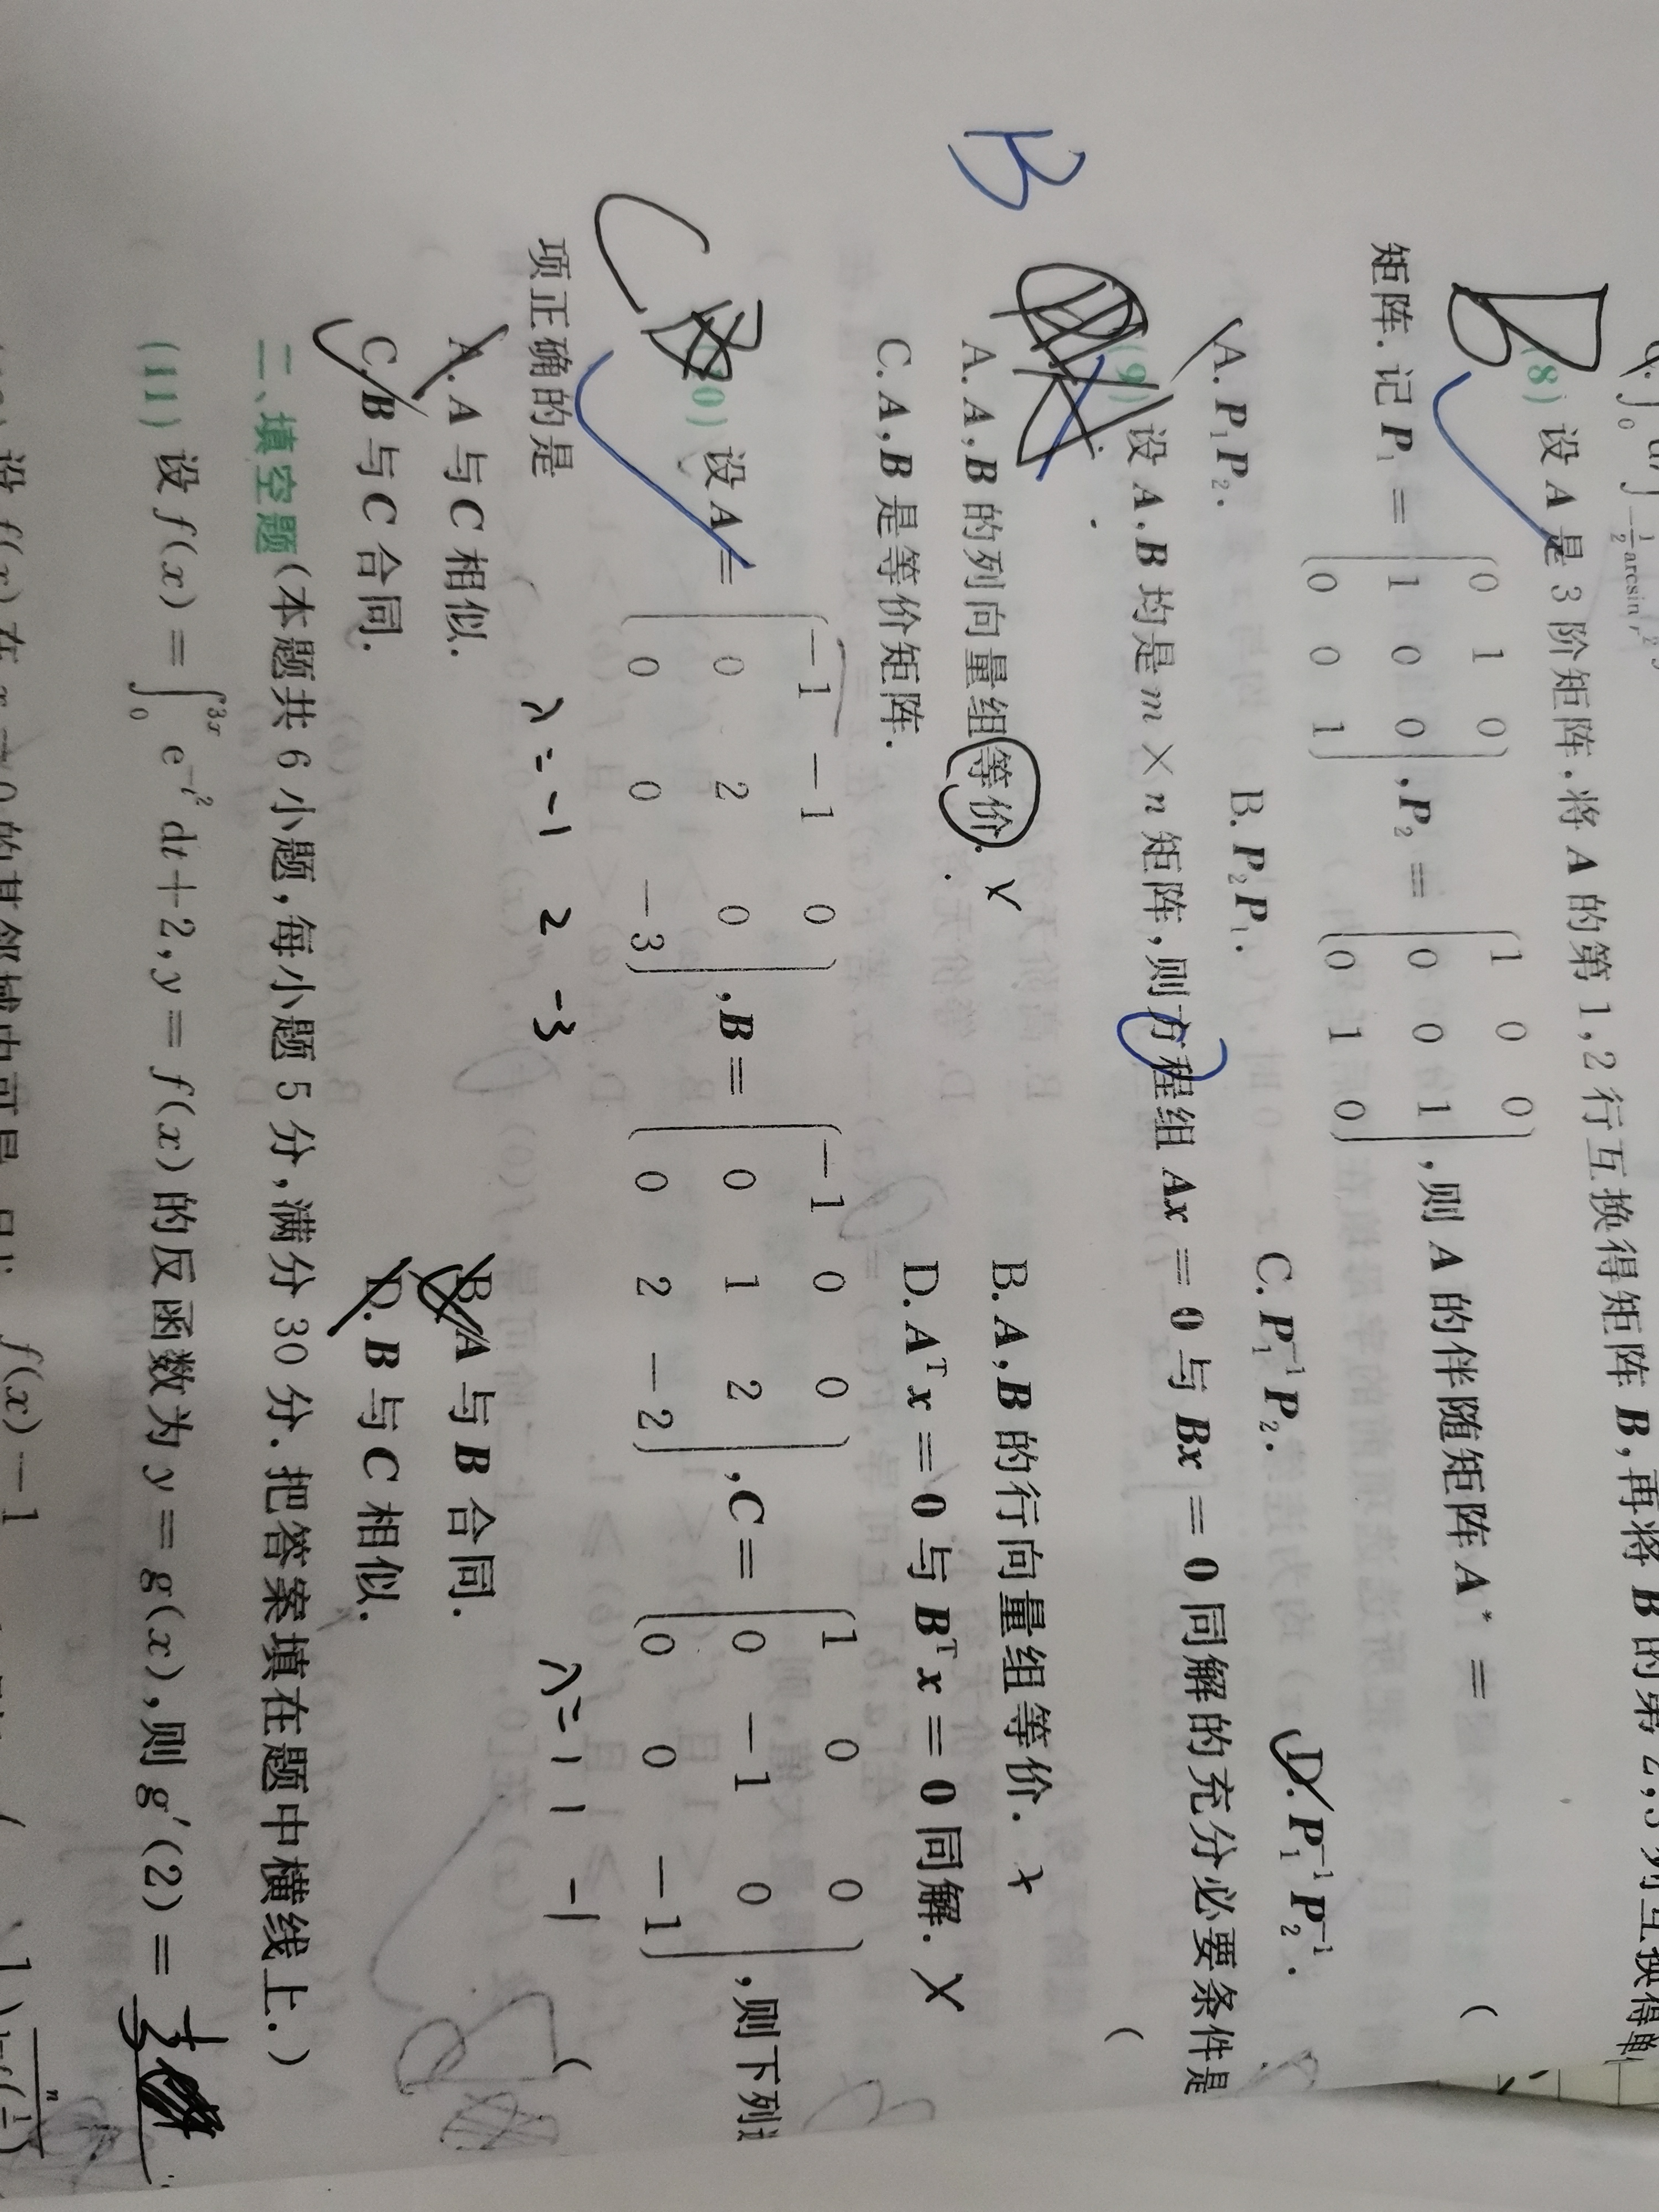 (8) 设 A 是 3 阶矩阵.将 A 的第 1,2 行互换得矩阵 B,再将 B 的第 2,3 列互换得单
矩阵.记 P₁ = (0 1 0; 1 0 0; 0 0 1), P₂ = (1 0 0; 0 0 1; 0 1 0), 则 A 的伴随矩阵 A* = (
A. P₁P₂. B. P₂P₁. C. P₁⁻¹P₂. D. P₁⁻¹P₂⁻¹.
B
(9) 设 A,B 均是 m × n 矩阵,则方程组 Ax = 0 与 Bx = 0 同解的充分必要条件是
(
A. A,B 的列向量组等价. B. A,B 的行向量组等价.
C. A,B 是等价矩阵. D. Aᵀx = 0 与 Bᵀx = 0 同解.
C
设 A = (−1 −1 0; 0 2 0; 0 0 −3), B = (−1 0 0; 0 1 2; 0 2 −2), C = (1 0 0; 0 −1 0; 0 0 −1), 则下列
项正确的是 (
λ = −1 2 −3 λ = 1 1 −1
A. A 与 C 相似. B. A 与 B 合同.
C. B 与 C 合同. D. B 与 C 相似.
二、填空题(本题共 6 小题,每小题 5 分,满分 30 分.把答案填在题中横线上.)
(11) 设 f(x) = ∫₀³ˣ e^(−t²) dt + 2, y = f(x) 的反函数为 y = g(x), 则 g′(2) = 1/3